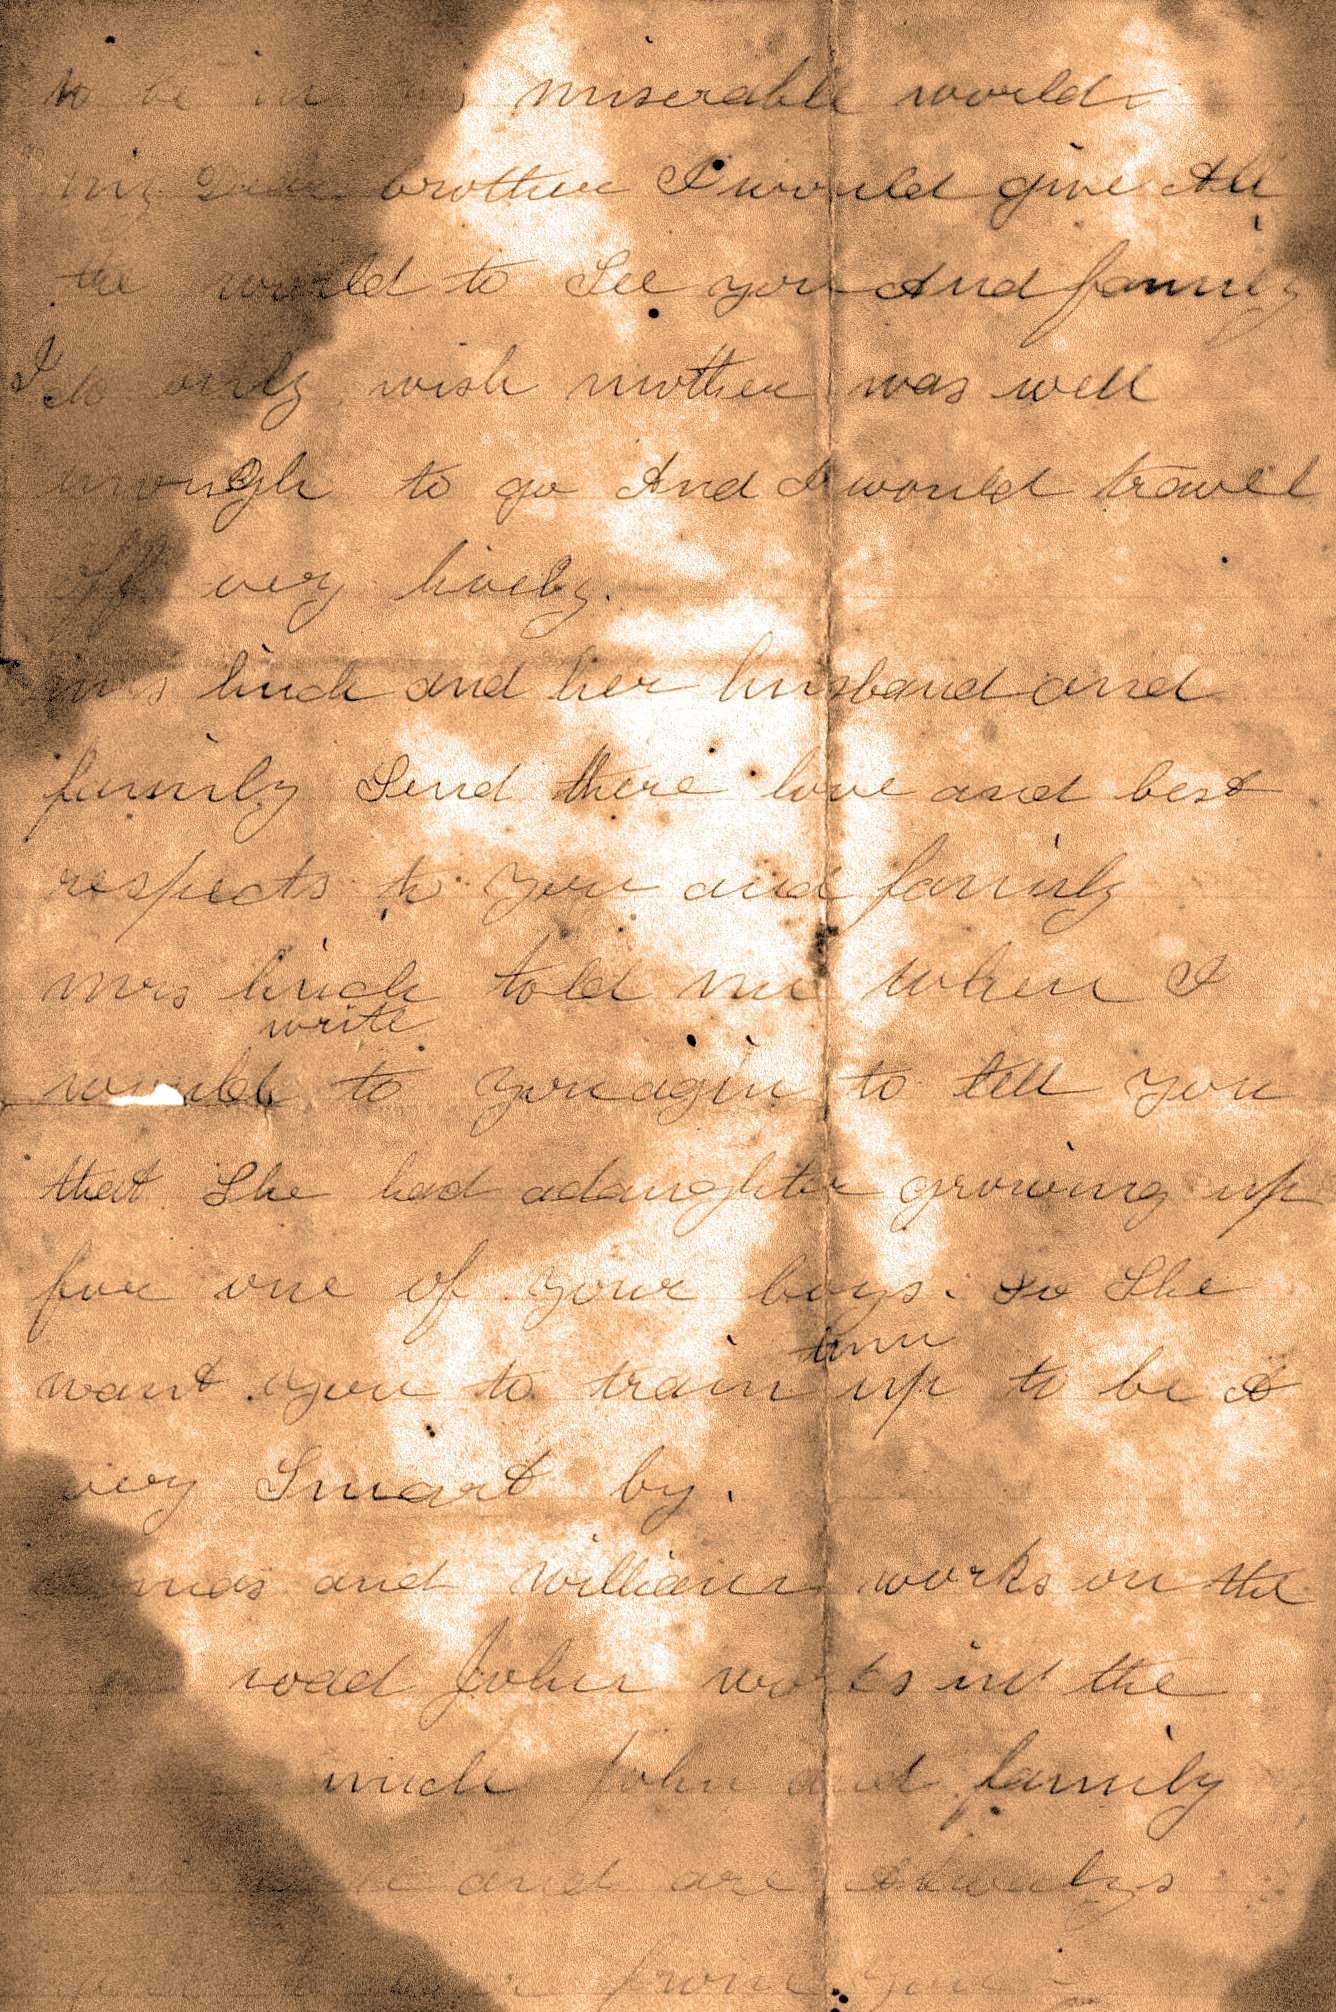 to be in miserable world
my dear brother I would give All
the world to See you And family
I do only wish mother was well
enough to go And I would travel
off very lively.
mrs and her husband and
family Send there love and best
respects to you and family
mrs told me when I
write
would to you agin to tell you
that She had adaughter growing up
for one of your boys. so She
want you to train up to be A
very Smart by.
and william works on the
road John works in the
John and family
and are Always
from you